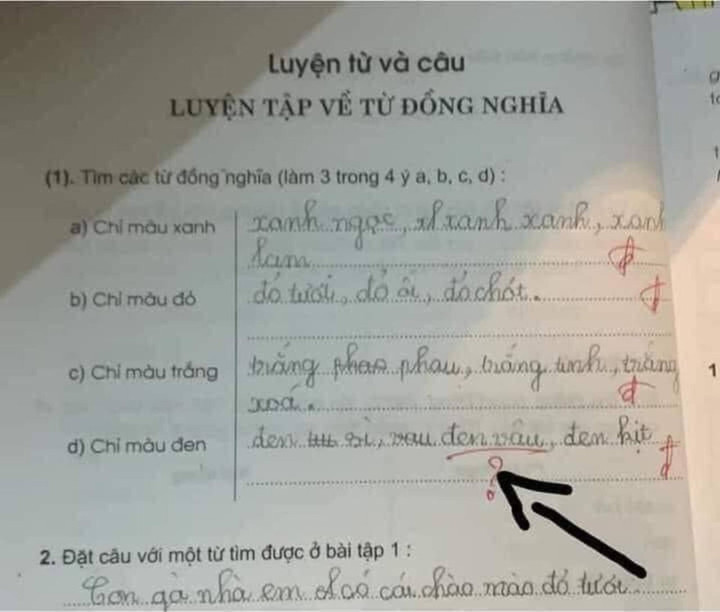 Luyện từ và câu
LUYỆN TẬP VỀ TỪ ĐỒNG NGHĨA
(1). Tìm các từ đồng nghĩa (làm 3 trong 4 ý a, b, c, d) :
a) Chỉ màu xanh
xanh ngọc, xanh xanh, xanh
lam
đ
b) Chỉ màu đỏ
đỏ tươi, đỏ ối, đỏ chót.
đ
c) Chỉ màu trắng
trắng phau phau, trắng tinh, trắng
xoá.
đ
d) Chỉ màu đen
đen sì, đen vâu, đen kịt
đ
?
2. Đặt câu với một từ tìm được ở bài tập 1 :
Con gà nhà em có cái chào mào đỏ tươi.
1